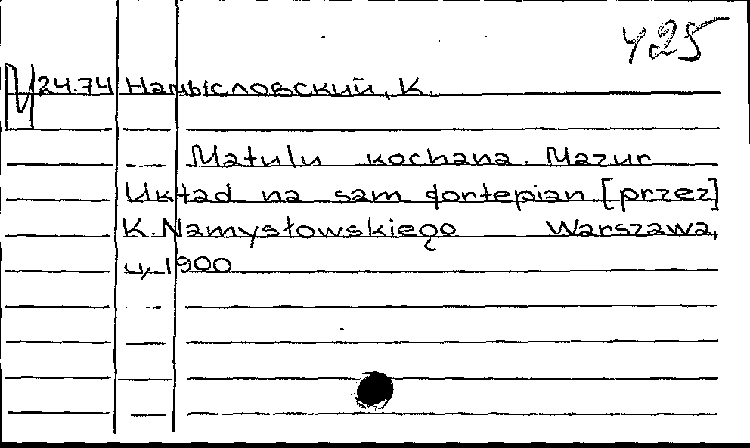 425
24.74 Намысловский, К.
Matulu kochana. Mazur
Układ na sam fortepian [przez]
K. Namysłowskiego Warszawa,
ц. 1900